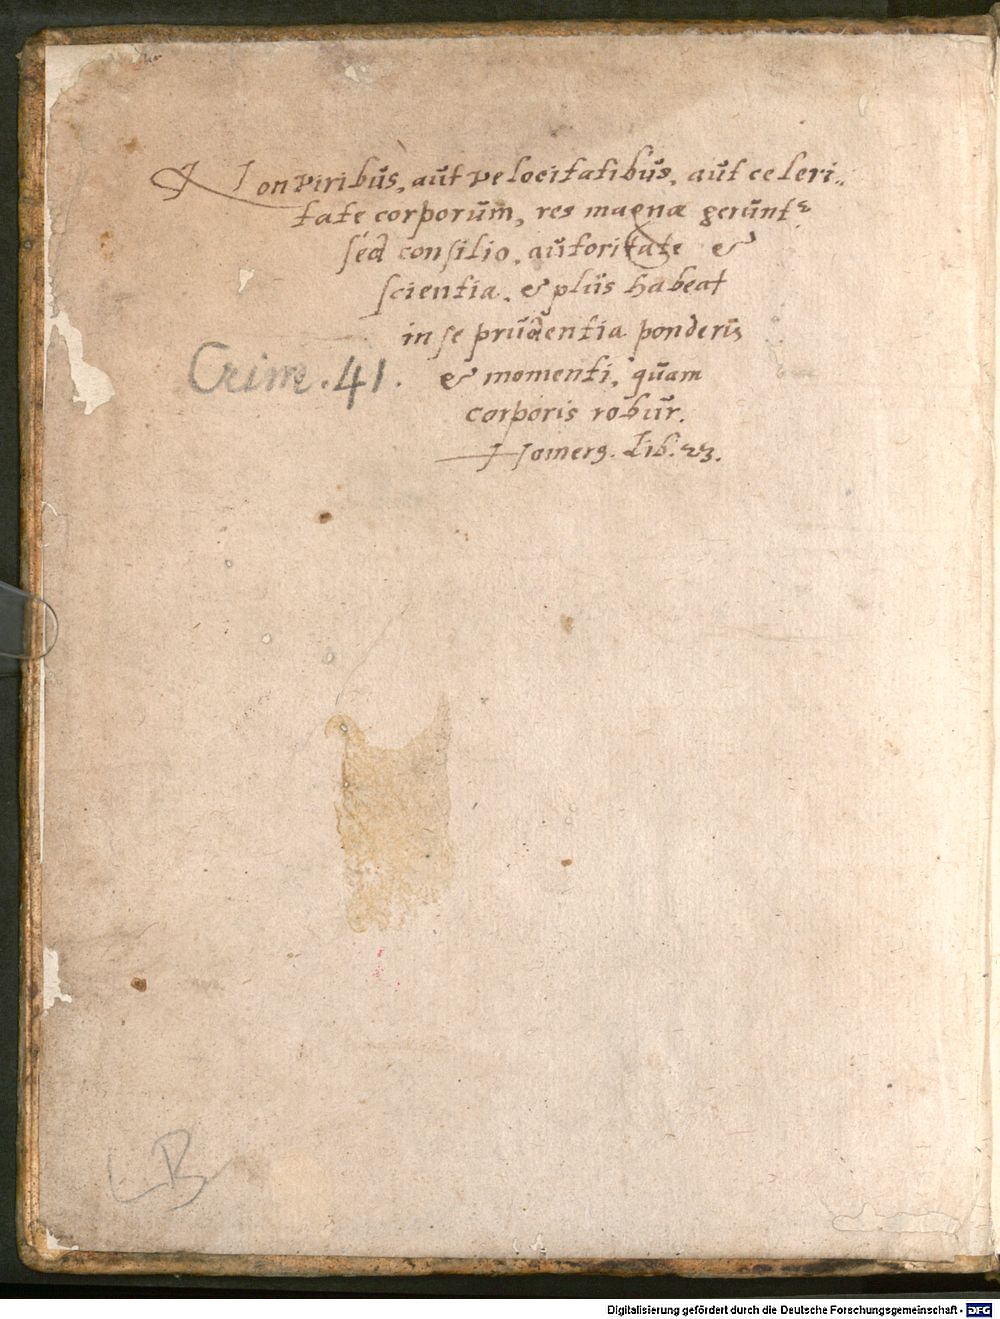 Non viribus, aut velocitatibus, aut celeri-
tate corporum, res magnæ gerunt^r
sed consilio, autoritate &
scientia, & plus habeat
in se prudentia ponderis
Crim. 41.
& momenti, quam
corporis robur.
Homerꝰ. Lib. 23.
LB
Digitalisierung gefördert durch die Deutsche Forschungsgemeinschaft - DFG